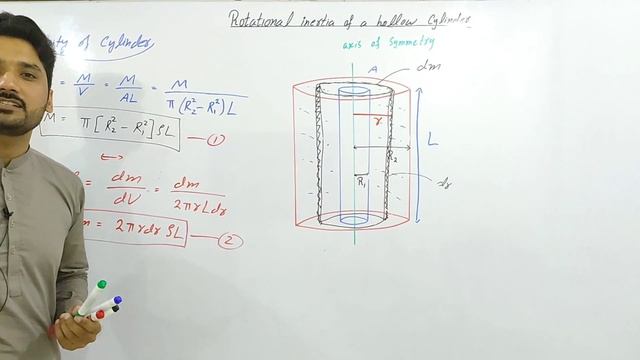 Rotational inertia of a hollow Cylinder
of Cylinder
= M/V = M/AL = M/π(R₂² - R₁²)L
M = π[R₂² - R₁²]ρL — ①
= dm/dV = dm/2πrLdr
m = 2πrdr ρL — ②
axis of Symmetry
A
dm
r
L
R₂
R₁
dr